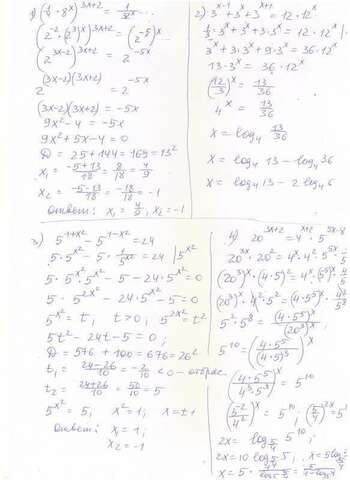 1) (1/4 · 8^x)^{3x+2} = 1/32^x ...
(2^{-2}(2^3)^x)^{3x+2} = (2^{-5})^x
(2^{3x-2})^{3x+2} = 2^{-5x}
2^{(3x-2)(3x+2)} = 2^{-5x}
(3x-2)(3x+2) = -5x
9x² - 4 = -5x
9x² + 5x - 4 = 0
D = 25 + 144 = 169 = 13²
x₁ = (-5+13)/18 = 8/18 = 4/9
x₂ = (-5-13)/18 = -18/18 = -1
Ответ: x₁ = 4/9, x₂ = -1
2) 3^{x-1} + 3^x + 3^{x+1} = 12 · 12^x
1/3 · 3^x + 3^x + 3 · 3^x = 12 · 12^x |
3^x + 3 · 3^x + 9 · 3^x = 36 · 12^x
13 · 3^x = 36 · 12^x
(12/3)^x = 13/36
4^x = 13/36
x = log₄ 13/36
x = log₄ 13 - log₄ 36
x = log₄ 13 - 2 log₄ 6
3) 5^{1+x²} - 5^{1-x²} = 24
5 · 5^{x²} - 5 · 1/5^{x²} = 24 | 5^{x²}
5 · 5^{x²} · 5^{x²} - 5 - 24 · 5^{x²} = 0
5 · 5^{2x²} - 24 · 5^{x²} - 5 = 0
5^{x²} = t, t > 0; 5^{2x²} = t²
5t² - 24t - 5 = 0;
D = 576 + 100 = 676 = 26²
t₁ = (24-26)/10 = -2/10 < 0 - отбрас.
t₂ = (24+26)/10 = 50/10 = 5
5^{x²} = 5, x² = 1; x = ±1
Ответ: x₁ = 1;
x₂ = -1
4) 20^{3x+2} = 4^{x+2} · 5^{5x-8}
20^{3x} · 20² = 4^x · 4² · 5^{5x}
(20³)^x · (4·5)² = 4^x · (5^5)^x · 4²
(20³)^x · 4² · 5² = (4·5^5)^x · 4²
5² · 5^8 = (4·5^5)^x / (20³)^x ;
5^{10} = ((4·5^5)/(4·5)³)^x
((4·5^5)/(4³·5³))^x = 5^{10}
(5²/4²)^x = 5^{10}; (5/4)^{2x} = 5
2x = log_{5/4} 5^{10};
2x = 10 log_{5/4} 5;